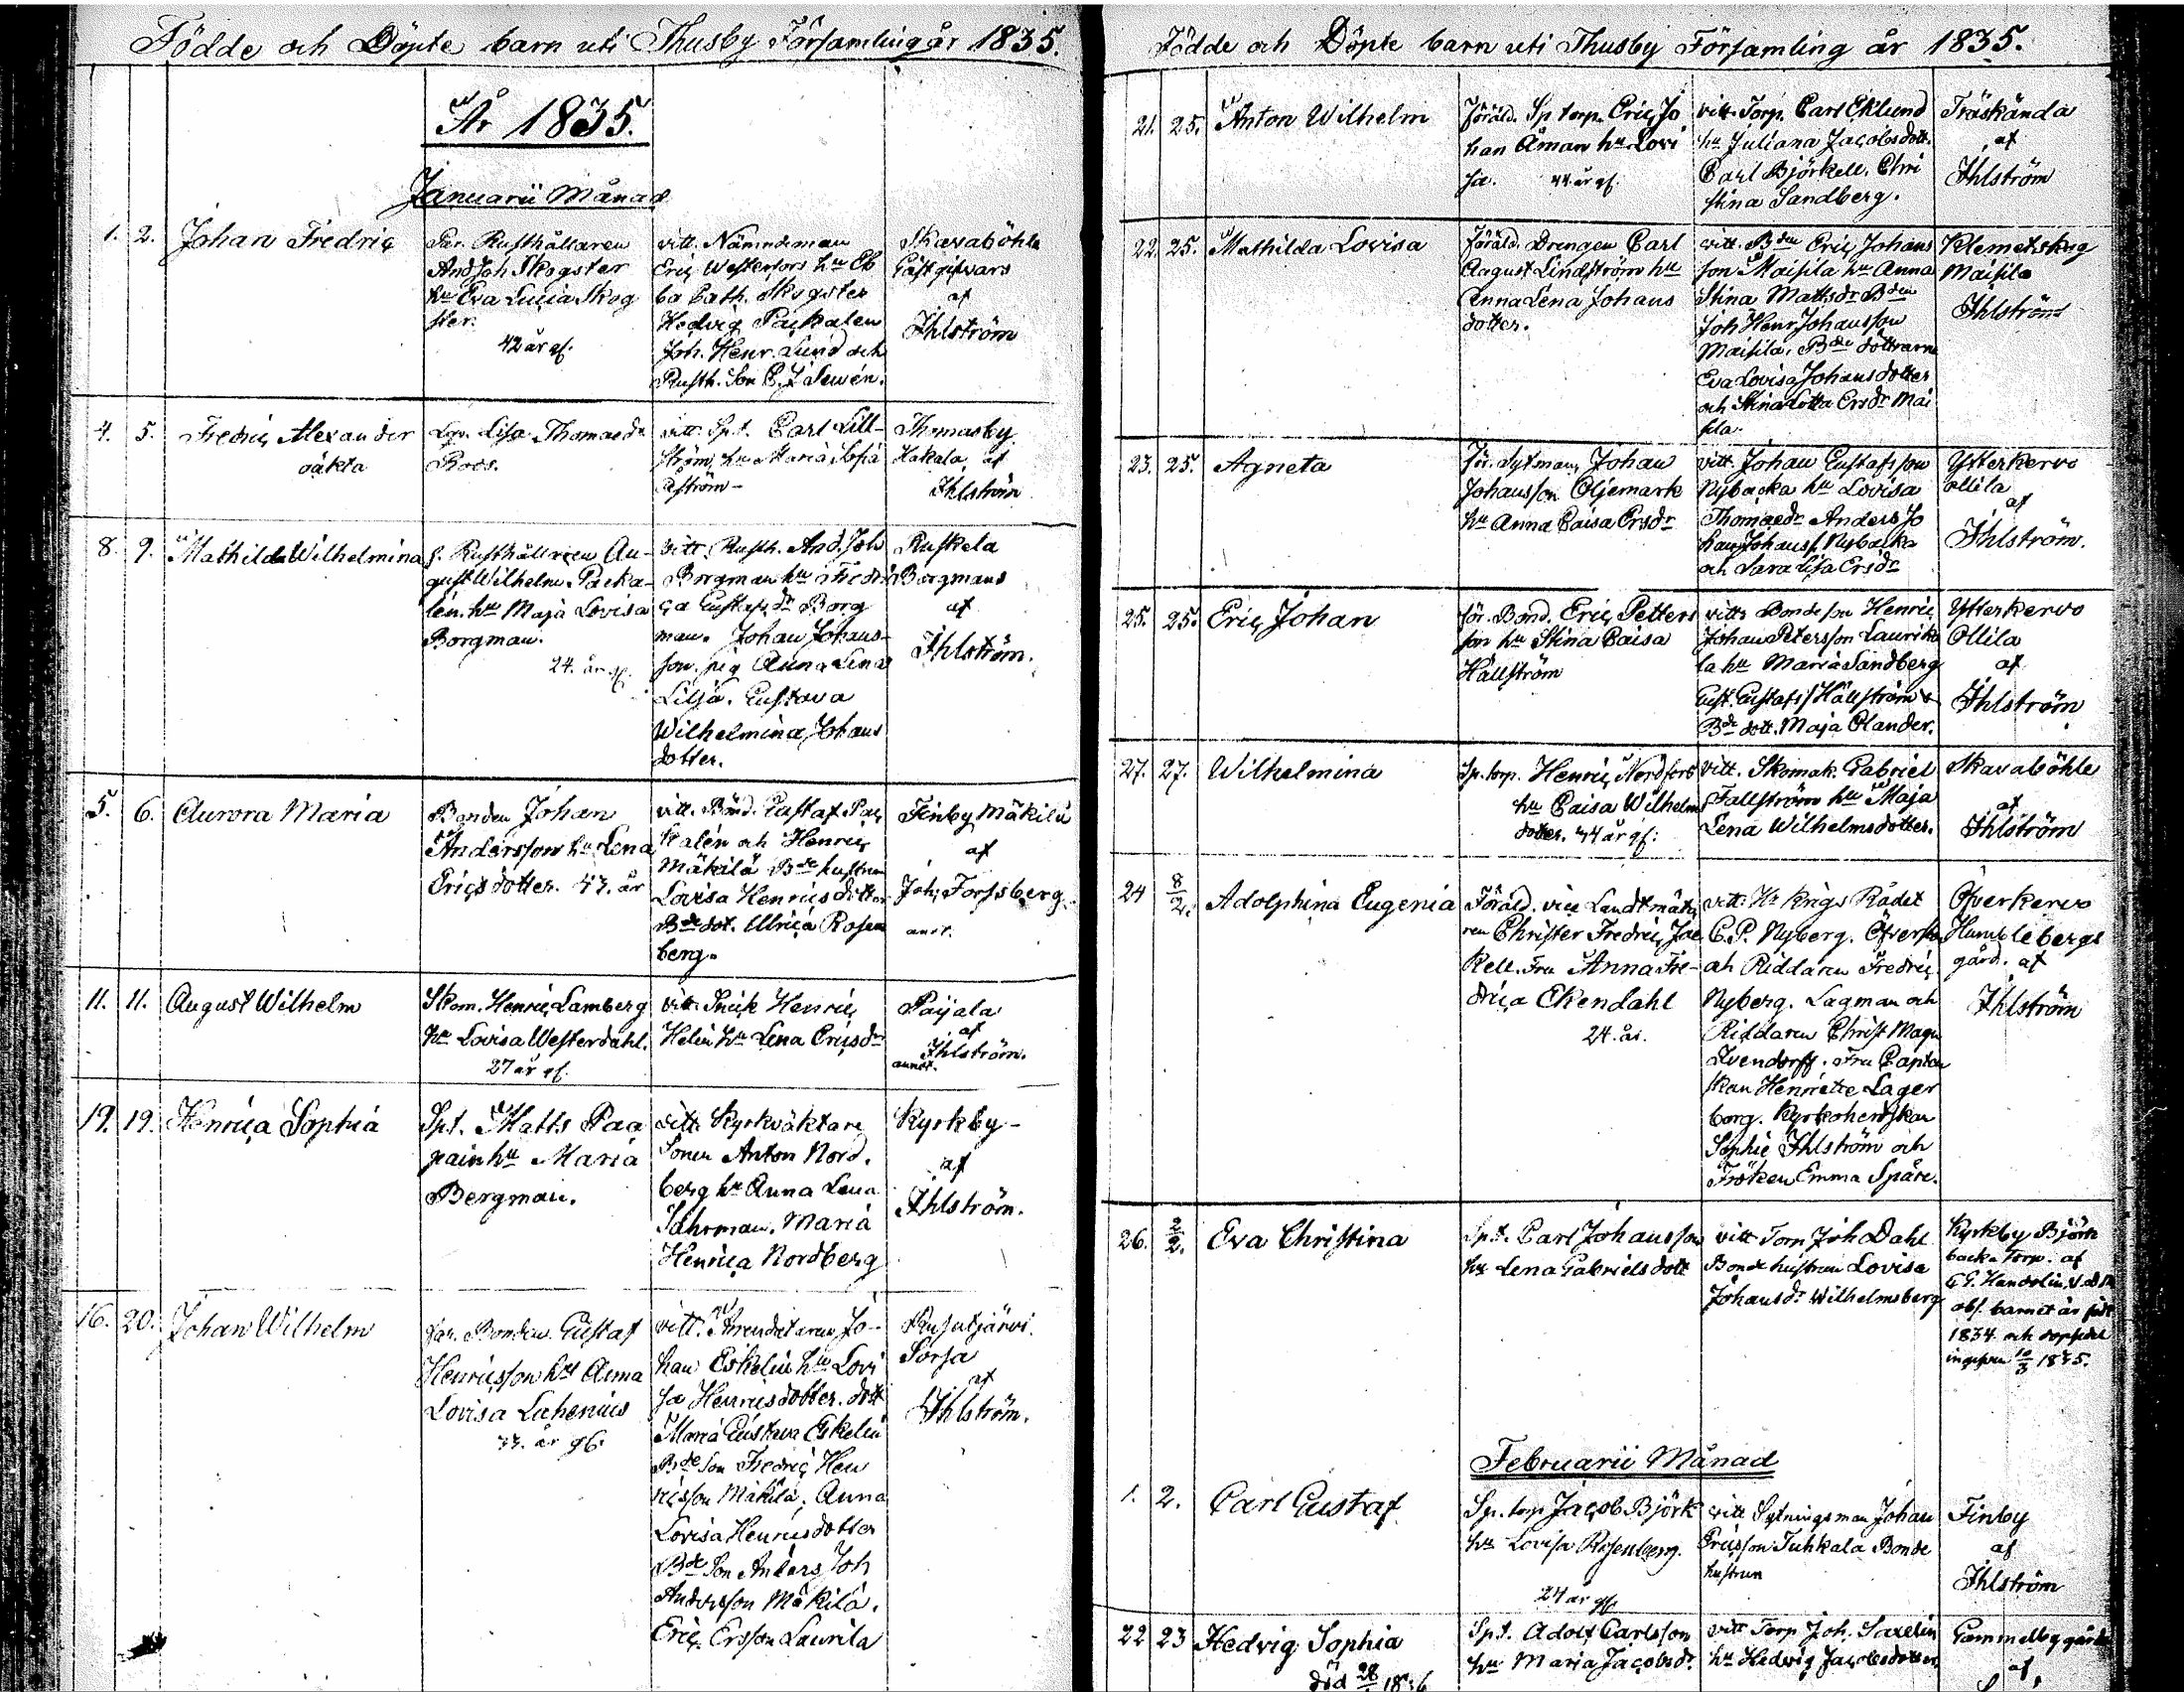 Födde och Döpte barn uti Thusby Församling år 1835.
År 1835.
Januarii Månad
1. 2. Johan Fredric
Rusthållaren
And Joh Skogster
hu Eva Lucia Skog
ster.
42 år gl.
vitt. Nämndeman
Eric Westerfors hu Eb
ba Cath. Skogster
Hedvig Packalen
Joh. Henr. Lund och
Rusth. Son C. J.
Skavaböhle
Gästgifvars
af
Ihlström
4. 5. Fredric Alexander
oäkta
Lisa Thomasdr
Roos.
vitt. Spt. Carl Lill-
ström, hu Maria Sofia
Thomasby
Hakala, af
Ihlström
8. 9. Mathilda Wilhelmina
f. Rusthållaren Au-
gust Wilhelm Packa-
len. hu Maja Lovisa
Borgman.
24. år gl.
vitt. Rusth. And. Joh
Borgman hu Fredri
ca Gustafsdr Borg
man. Johan Johans-
son. pig Anna Lena
Lilja. Gustava
Wilhelmina Johans
dotter.
Ruskela
Borgmans
af
Ihlström.
5. 6. Aurora Maria
Bonden Johan
Andersson hu Lena
Ericsdotter. 43. år
vitt. Bond. Gustaf Pac
kalén och Henric
Mäkilä Bde hustrun
Lovisa Henricsdotter
Bde dot. Ulrica Rosen
berg.
Finby Mäkilä
af
Joh. Forssberg.
11. 11. August Wilhelm
Skom. Henric Lamberg
hu Lovisa Westerdahl.
27 år gl.
vitt. Henric
Helin hu Lena Ericsdr
Paijala
af
Ihlström.
19. 19. Henrica Sophia
Spt. Matts Paa
hu Maria
Bergman.
vitt. Kyrkväktare
Sonen Anton Nord.
berg hu Anna Lena
Maria
Henrica Nordberg
Kyrkby-
af
Ihlström.
16. 20. Johan Wilhelm
Bonden Gustaf
Henricsson hu Anna
Lovisa Lahenius
vitt. Arrendatoren Jo-
han Eskelin hu Lovi
sa Henricsdotter. dott
Maria Gustava Eskelin
Bde son Fredric Hen
ricsson Mäkilä. Anna
Lovisa Henricsdotter
Bde Son Anders Joh
Andersson Mäkilä.
Eric Ersson Laurila
Rusutjärvi.
Sorsa
af
Ihlström.
Födde och Döpte barn uti Thusby Församling år 1835.
21. 25. Anton Wilhelm
Föräld. Sp torp. Eric Jo
han Åman hu Lovi
sa. 44 år gl.
vitt. Torp. Carl Eklund
hu Juliana Jacobsdott.
Carl Björkell. Chri
stina Sandberg.
Träskända
af
Ihlström
22. 25. Mathilda Lovisa
Föräld. Drengen Carl
August Lindström hu
Anna Lena Johans
dotter.
vitt. Bden Eric Johans
son Maisila hu Anna
Stina Mattsdr Bden
Joh Henr Johansson
Maisila, Bde döttrarne
Eva Lovisa Johansdotter
och Stina Lotta Ersdr Mai
sila.
Klemetskog
Maisila
Ihlström
23. 25. Agneta
För. Sytman Johan
Johansson Oljemark
hu Anna Caisa Ersdr
vitt. Johan Gustafsson
Nybacka hu Lovisa
Thomasdr Anders Jo
han Johanss. Nybacka
och Sara Lisa Ersdr
Ytterkervo
Ollila
af
Ihlström.
25. 25. Eric Johan
för. Bond. Eric Petters
son hu Stina Caisa
Hällström
vitt. Bonde son Henric
Johan Petersson Lauriko
la hu Maria Sandberg
Gust. Gustafs. Hällström &
Bde dott. Maja Olander.
Ytterkervo
Ollila
af
Ihlström
27. 27. Wilhelmina
Sp. torp. Henric Nordfors
hu Caisa Wilhelms
dotter. 44 år gl.
vitt. Skomak. Gabriel
Fallström hu Maja
Lena Wilhelmsdotter.
Skavaböhle
af
Ihlström
24 8/2. Adolphina Eugenia
Föräld. vice Landtmäta
ren Christer Fredric Jae
kell. Fru Anna Fre-
drica Ekendahl
24. år.
vitt. Hr Krigs Rådet
C. P. Nyberg. Öfversten
och Riddaren Fredric
Nyberg. Lagman och
Riddaren Christ Magn
Avendorff. Fru Capten
skan Henriette Lager
borg. Kyrkoherdskan
Sophie Ihlström och
Fröken Emma Spåre.
Öfverkervo
Humlebergs
gård. af
Ihlström
26. 2/2. Eva Christina
Spt. Carl Johansson
hu Lena Gabrielsdott
vitt Torp Joh Dahl
Bonde hustrun Lovisa
Johansdr Wilhelmsberg
Kyrkby Björk
backa Torp. af
C G. Handolin
obs. barnet är född
1834 och
10/3 1835.
Februarii Månad
1. 2. Carl Gustaf
Sp. torp Jacob Björk
hu Lovisa Rosenberg.
24 år gl.
vitt Sytningsman Johan
Ericsson Tuhkala Bonde
hustrun
Finby
af
Ihlström
22 23 Hedvig Sophia
död 28
Spt. Adolf Carlsson
hu Maria Jacobsdr.
vitt Torp Joh. Saxelin
hu Hedvig Jacobsdotter.
Gammelby gård
af